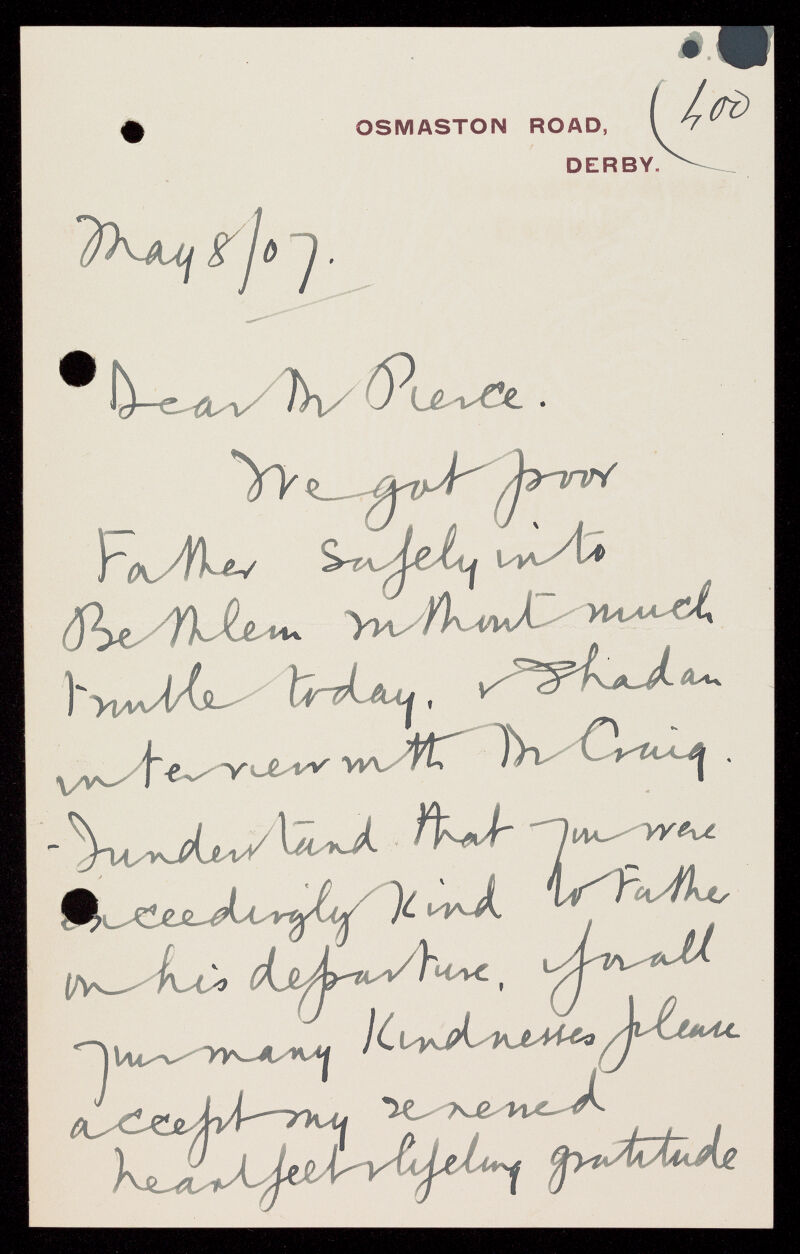 400
OSMASTON ROAD,
DERBY.
May 8/07.
Dear Dr Pierce.
We got poor
Father safely into
Bethlem without much
trouble today. & I had an
interview with Dr Craig.
- I understand that you were
exceedingly kind to Father
on his departure, & for all
your many kindnesses please
accept my renewed
heartfelt & lifelong gratitude